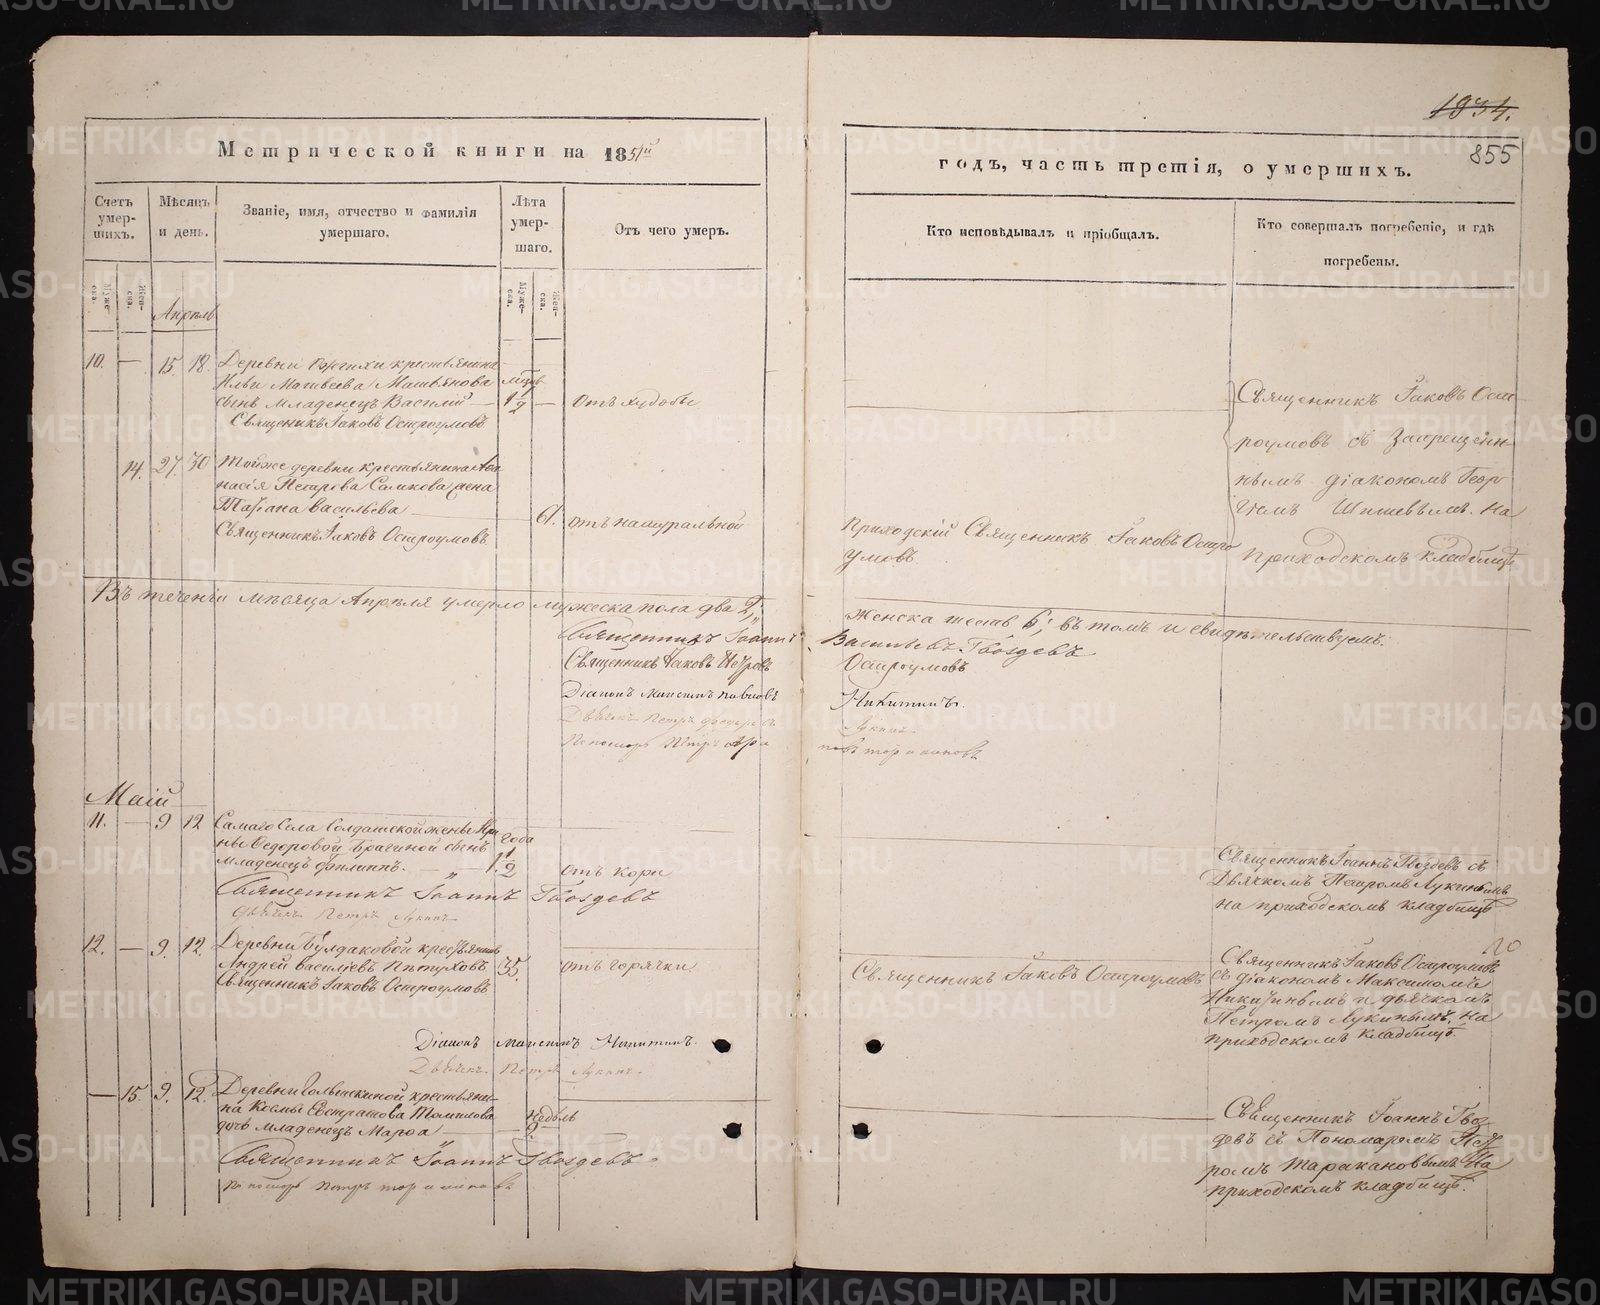 1834.
855
Метрической книги на 1851й
годъ, часть третія, о умершихъ.
Счетъ умер-шихъ.
Мѣсяцъ и день.
Званіе, имя, отчество и фамилія умершаго.
Лѣта умер-шаго.
Отъ чего умеръ.
Кто исповѣдывалъ и пріобщалъ.
Кто совершалъ погребеніе, и гдѣ погребены.
Муже-ска.
Жен-ска.
Муже-ска.
Жен-ска.
Апрѣль
10. — 15. 18. Деревни крестьянина
Ильи Матвѣева
сынъ младенецъ Василій — 1 1/2 — отъ худобы
Священникъ Іаковъ Остроумовъ
Священникъ Іаковъ Ост-
роумовъ съ запрещен-
нымъ діакономъ Геор-
гіемъ Шишевымъ. На
приходскомъ кладбищѣ
14. 27. 30 Тойже деревни крестьянина Аѳа-
насія Петрова жена
Татіана Васильева — 61. отъ натуральной
Священникъ Іаковъ Остроумовъ
Приходскій Священникъ Іаковъ Остро
умовъ
Въ теченіи мѣсяца Апрѣля умерло мужеска пола два 2,;
женска шесть 6; въ томъ и свидѣтельствуемъ:
Священникъ Іоаннъ
Васильевъ Гвоздевъ
Священникъ Іаковъ Петровъ
Остроумовъ
Діаконъ Максимъ Павловъ
Никитинъ.
Дьячекъ Петръ
Лукинъ
Пономарь Петръ
Маій
11. — 9 12 Самаго Села Солдатской жены Ири
ны Ѳедоровой Брагиной сынъ года
младенецъ Филиппъ. — 1. 1/2 отъ кори
Священникъ Іоаннъ Гвоздевъ
Дьячекъ Петръ Лукинъ
Священникъ Іоаннъ Гвоздевъ съ
Дьячкомъ Петромъ Лукинымъ
на приходскомъ кладбищѣ
12. — 9. 12. Деревни Булдаковой крестьянинъ
Андрей Васильевъ Пѣтуховъ 35. отъ горячки
Священникъ Іаковъ Остроумовъ
Священникъ Іаковъ Остроумовъ
Священникъ Іаковъ Остроумовъ
съ діакономъ Максимомъ
Никитинымъ и дьячкомъ
Петромъ Лукинымъ. На
приходскомъ кладбищѣ.
Діаконъ Максимъ Никитинъ.
Дьячекъ Петръ Лукинъ.
— 15. 9. 12. Деревни крестьяни-
на Косьмы Евстратова Томилова недѣль
дочь младенецъ Марѳа — 2.
Священникъ Іоаннъ Гвоздевъ.
Пономарь Петръ
Священникъ Іоаннъ Гвоз-
девъ съ Пономаремъ Пет-
ромъ Таракановымъ На
приходскомъ кладбищѣ.
METRIKI.GASO-URAL.RU